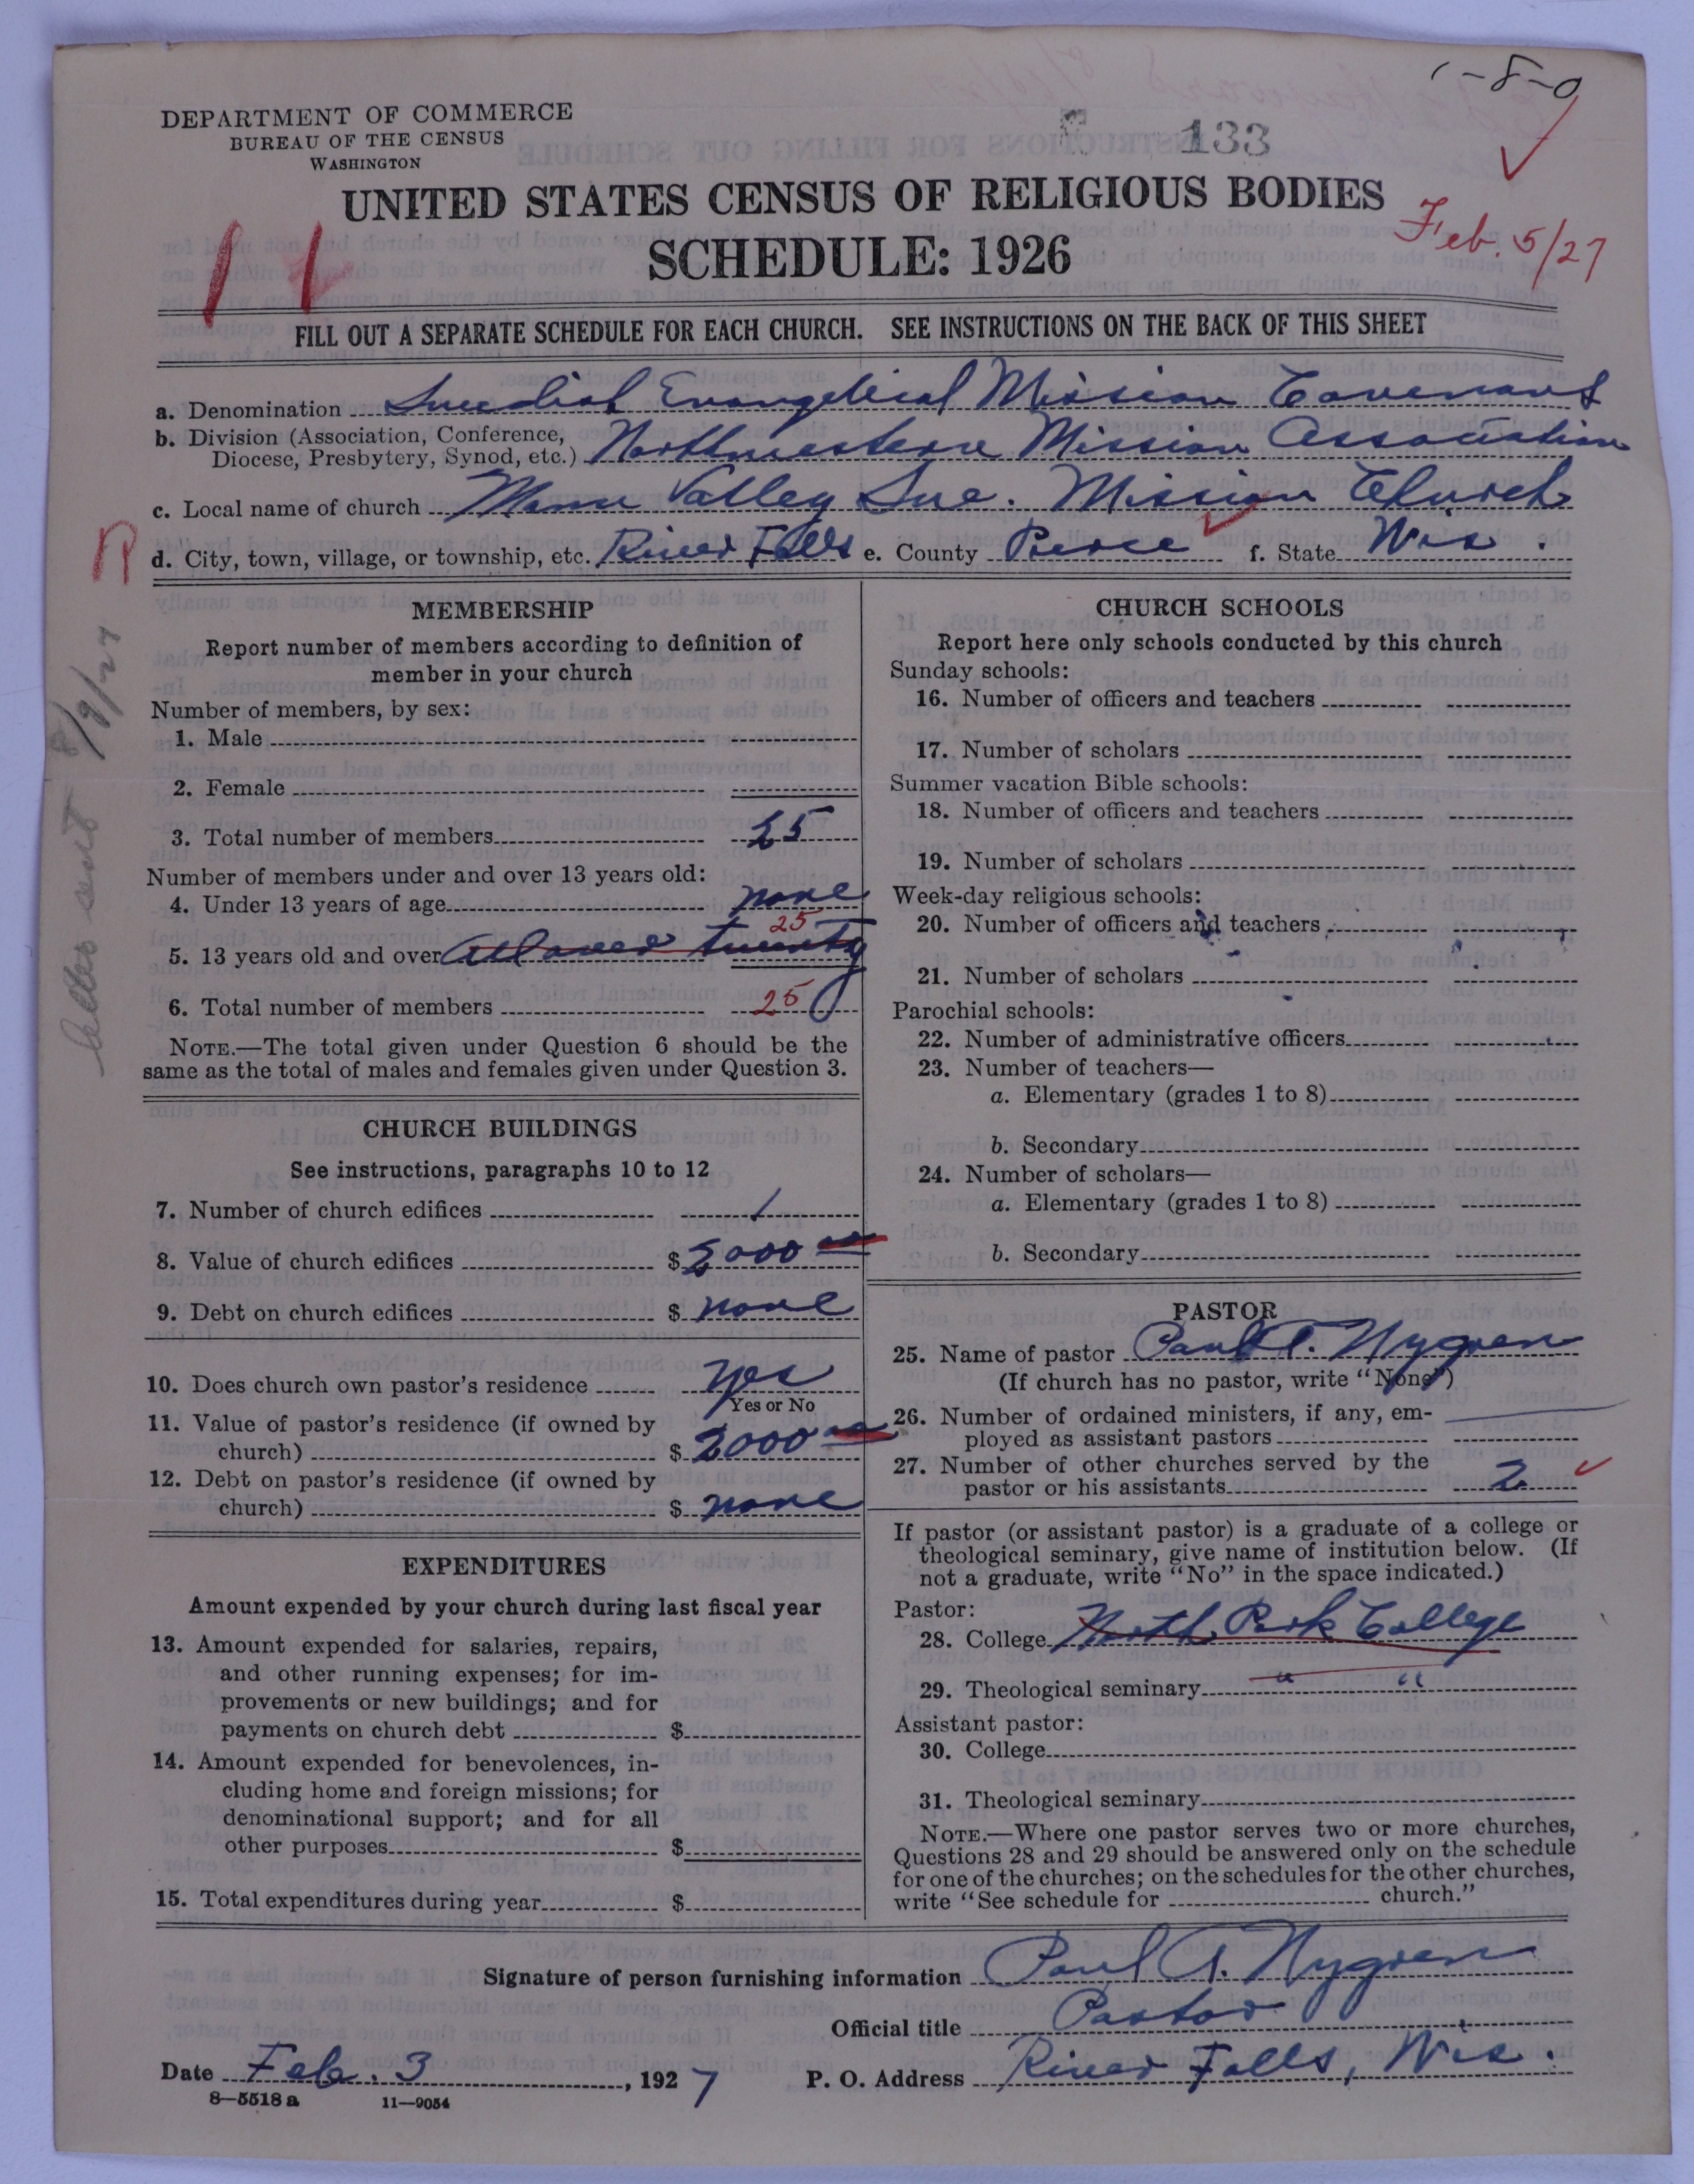 1-8-0
DEPARTMENT OF COMMERCE
BUREAU OF THE CENSUS
WASHINGTON
133
UNITED STATES CENSUS OF RELIGIOUS BODIES
SCHEDULE: 1926
Feb. 5/27
11
FILL OUT A SEPARATE SCHEDULE FOR EACH CHURCH. SEE INSTRUCTIONS ON THE BACK OF THIS SHEET
a. Denomination Swedish Evangelical Mission Covenant
b. Division (Association, Conference, Diocese, Presbytery, Synod, etc.) Northwestern Mission Association
c. Local name of church Mann Valley Swe. Mission Church
d. City, town, village, or township, etc. River Falls e. County Pierce f. State Wis.
letter sent 8/9/27
MEMBERSHIP
Report number of members according to definition of
member in your church
Number of members, by sex:
1. Male
2. Female
3. Total number of members 25
Number of members under and over 13 years old:
4. Under 13 years of age none
5. 13 years old and over All over twenty 25
6. Total number of members 25
NOTE.—The total given under Question 6 should be the
same as the total of males and females given under Question 3.
CHURCH BUILDINGS
See instructions, paragraphs 10 to 12
7. Number of church edifices 1
8. Value of church edifices $ 2000 00
9. Debt on church edifices $ none
10. Does church own pastor's residence yes
Yes or No
11. Value of pastor's residence (if owned by
church) $ 2000 00
12. Debt on pastor's residence (if owned by
church) $ none
EXPENDITURES
Amount expended by your church during last fiscal year
13. Amount expended for salaries, repairs,
and other running expenses; for im-
provements or new buildings; and for
payments on church debt $
14. Amount expended for benevolences, in-
cluding home and foreign missions; for
denominational support; and for all
other purposes $
15. Total expenditures during year $
CHURCH SCHOOLS
Report here only schools conducted by this church
Sunday schools:
16. Number of officers and teachers
17. Number of scholars
Summer vacation Bible schools:
18. Number of officers and teachers
19. Number of scholars
Week-day religious schools:
20. Number of officers and teachers
21. Number of scholars
Parochial schools:
22. Number of administrative officers
23. Number of teachers—
a. Elementary (grades 1 to 8)
b. Secondary
24. Number of scholars—
a. Elementary (grades 1 to 8)
b. Secondary
PASTOR
25. Name of pastor Paul A. Nygren
(If church has no pastor, write "None")
26. Number of ordained ministers, if any, em-
ployed as assistant pastors
27. Number of other churches served by the
pastor or his assistants 2
If pastor (or assistant pastor) is a graduate of a college or
theological seminary, give name of institution below. (If
not a graduate, write "No" in the space indicated.)
Pastor:
28. College North Park College
29. Theological seminary " "
Assistant pastor:
30. College
31. Theological seminary
NOTE.—Where one pastor serves two or more churches,
Questions 28 and 29 should be answered only on the schedule
for one of the churches; on the schedules for the other churches,
write "See schedule for church."
Signature of person furnishing information Paul A. Nygren
Official title Pastor
Date Feb. 3, 1927 P. O. Address River Falls, Wis.
8—5518 a 11—9054